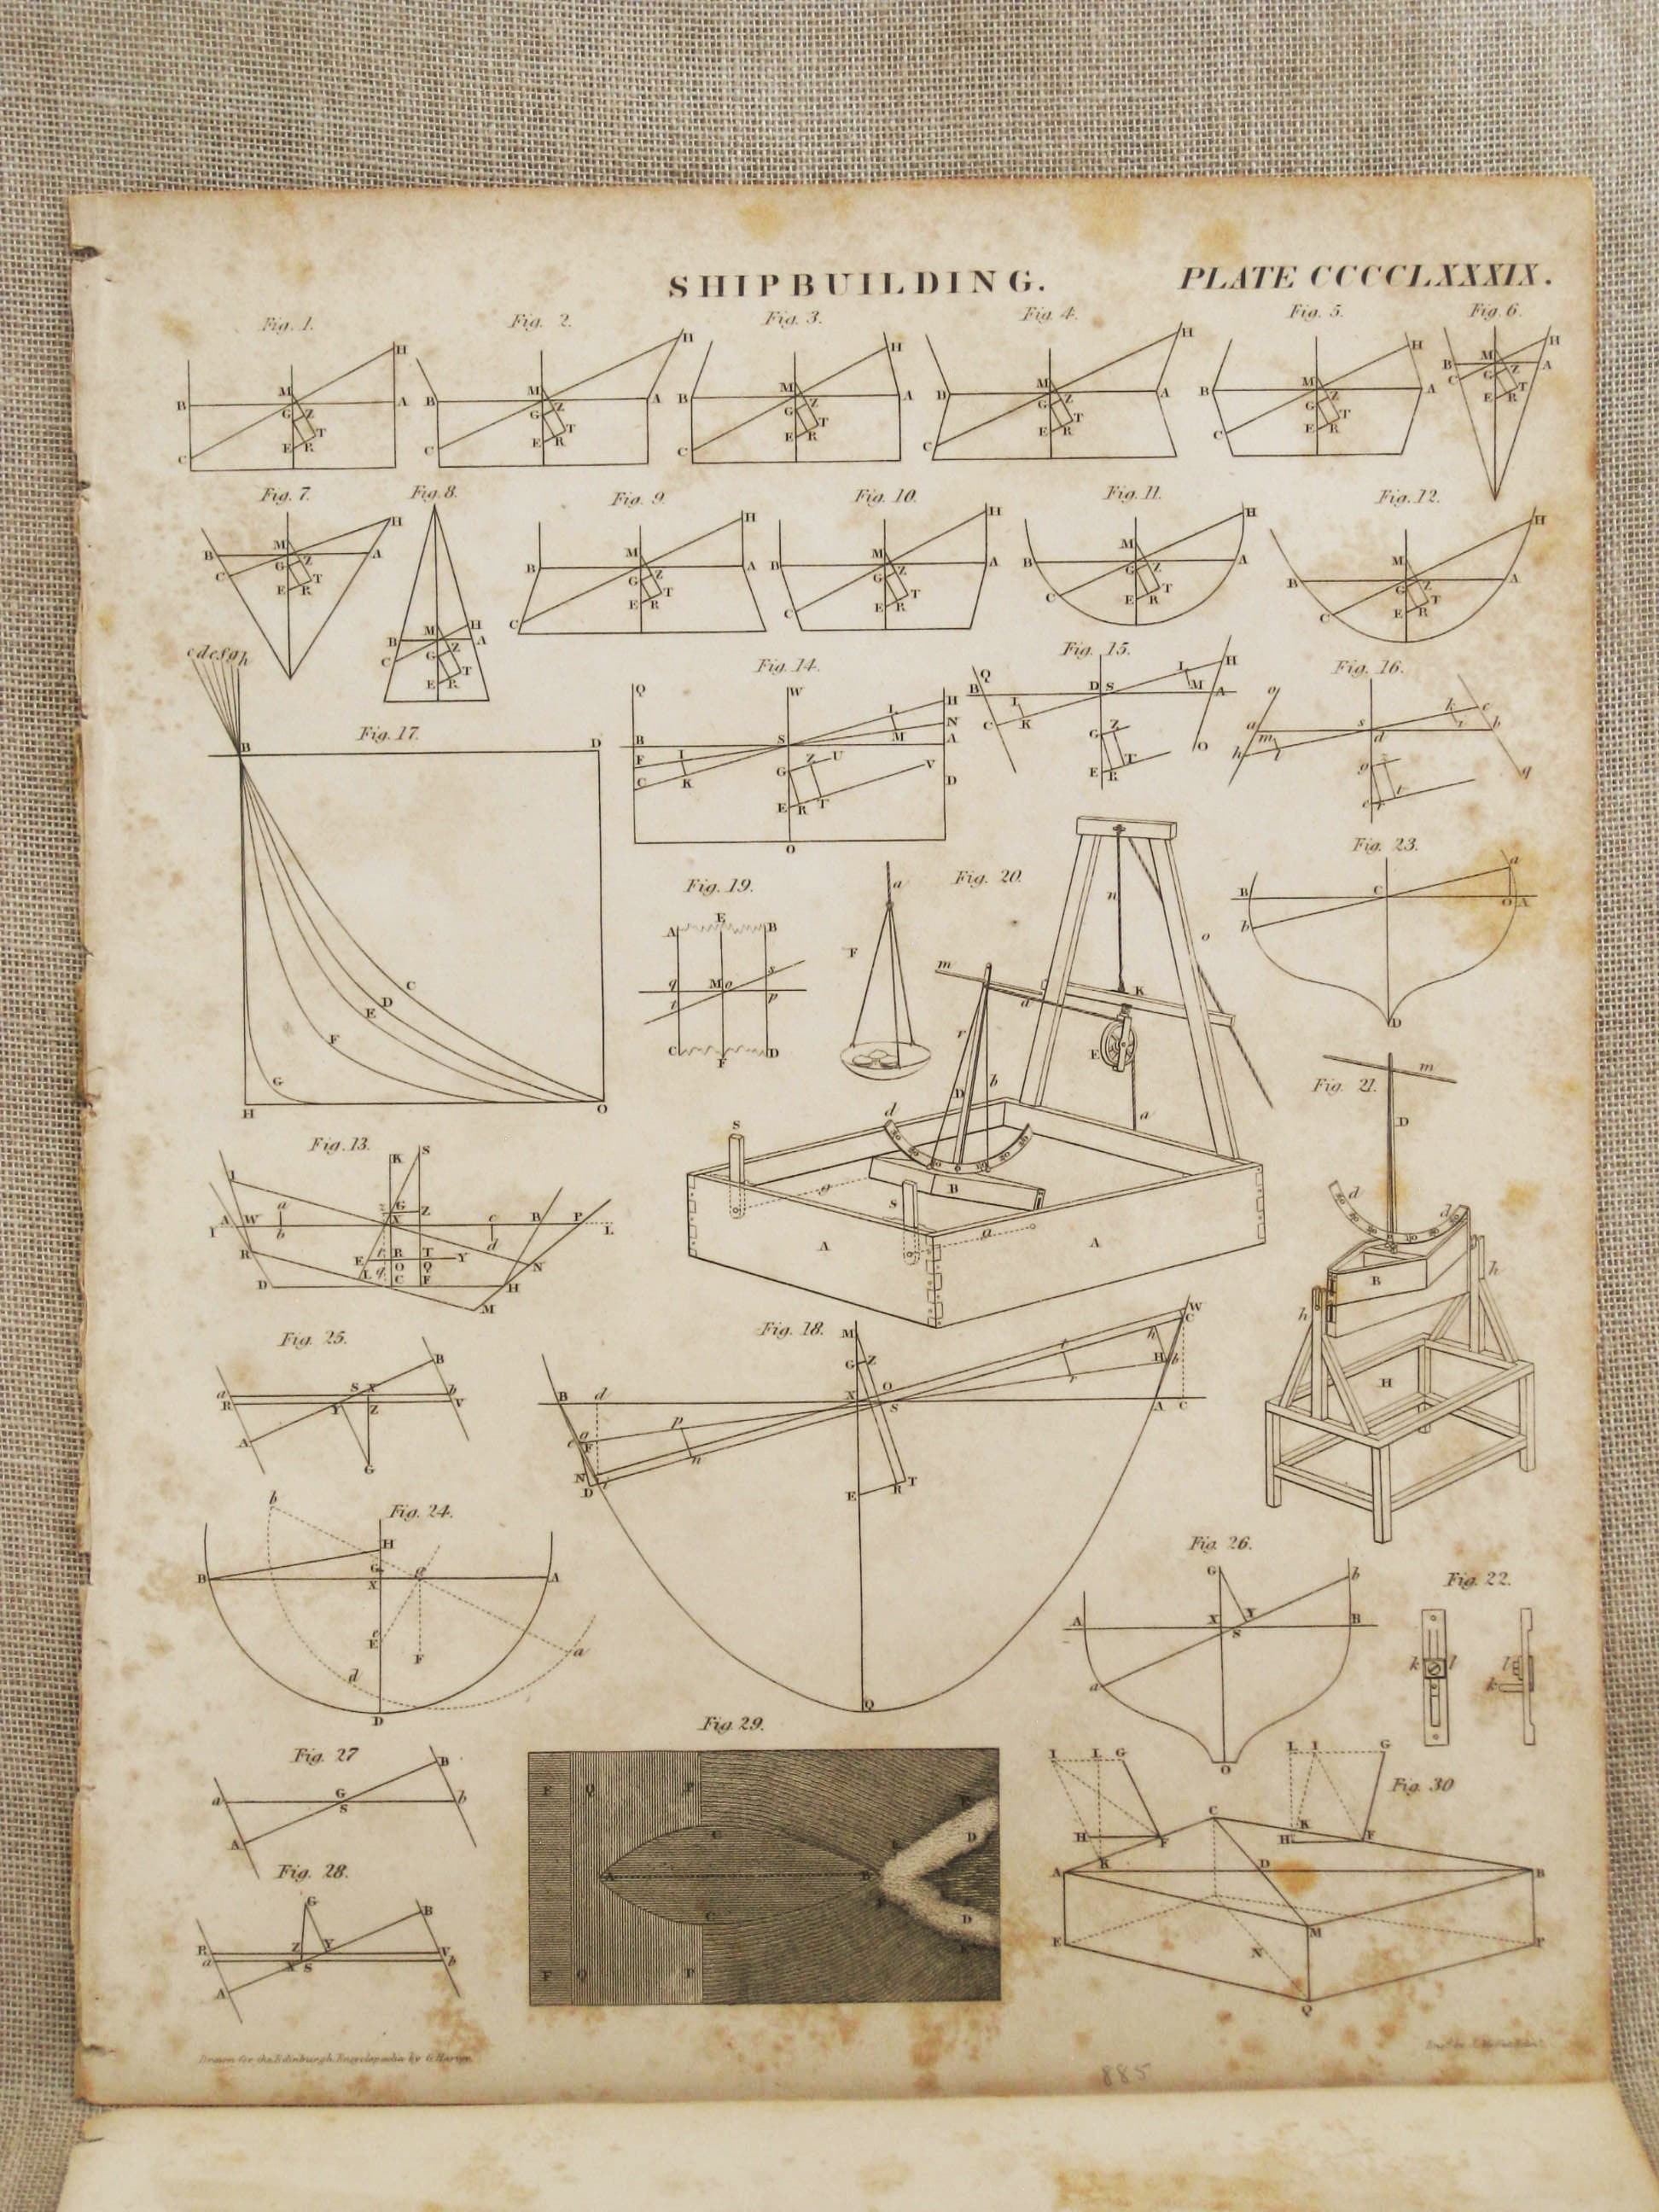 SHIPBUILDING.
PLATE CCCCLXXXIX.
Fig. 1.
H
M
B
A
G
Z
T
E
R
C
Fig. 2.
H
M
B
A
G
Z
T
E
R
C
Fig. 3.
H
M
B
A
G
Z
T
E
R
C
Fig. 4.
H
M
A
G
Z
T
E
R
C
Fig. 5.
H
M
B
A
G
Z
T
E
R
C
Fig. 6.
H
M
B
A
G
C
T
E
R
Fig. 7.
H
M
B
A
G
Z
C
T
E
R
Fig. 8.
H
M
B
A
G
Z
C
T
E
R
Fig. 9.
H
M
B
A
G
Z
T
E
R
C
Fig. 10.
H
M
B
A
G
Z
T
E
R
C
Fig. 11.
H
M
B
A
G
Z
T
E
R
C
Fig. 12.
H
M
B
A
G
Z
T
E
R
C
Fig. 17.
c d e f g h
B
D
C
D
E
F
G
H
O
Fig. 14.
Q
W
H
L
N
B
S
M
A
F
I
Z
U
G
V
C
K
D
E
R
T
O
Fig. 15.
Q
H
B
D S
L
M
A
I
C
K
Z
G
O
E
R
T
Fig. 16.
o
k
c
a
s
b
m
d
h
g
q
Fig. 19.
E
A
B
q
M
o
s
t
p
C
F
D
Fig. 20.
a
F
n
o
m
K
r
E
D
b
a
d
S
g
B
S
a
A
A
Fig. 23.
a
B
C
O A
b
D
Fig. 21.
m
D
d
d
B
h
h
H
Fig. 13.
K
S
I
a
G
Z
A
W
X
c
B
P
L
b
d
R
R
T
E
O
Q
Y
N
D
C
F
H
M
Fig. 25.
B
a
S X
b
R
Y
Z
V
A
G
Fig. 18.
M
W
C
G
Z
t
h
H
b
B
d
X
O
S
r
A
C
p
F
n
N
D
E
R
T
Q
Fig. 24.
b
H
G
B
X
A
E
F
a
d
D
Fig. 26.
G
b
A
X
Y
B
S
a
O
Fig. 22.
k
l
l
k
Fig. 27
B
a
G
S
b
A
Fig. 28.
G
B
R
Z
Y
V
a
X S
b
A
Fig. 29.
F
Q
P
C
D
A
B
C
D
F
Q
P
Fig. 30
I
L
G
L
I
G
C
H
F
K
H
F
K
A
D
B
M
E
N
P
Q
Drawn for the Edinburgh Encyclopædia by G. Harvey.
885